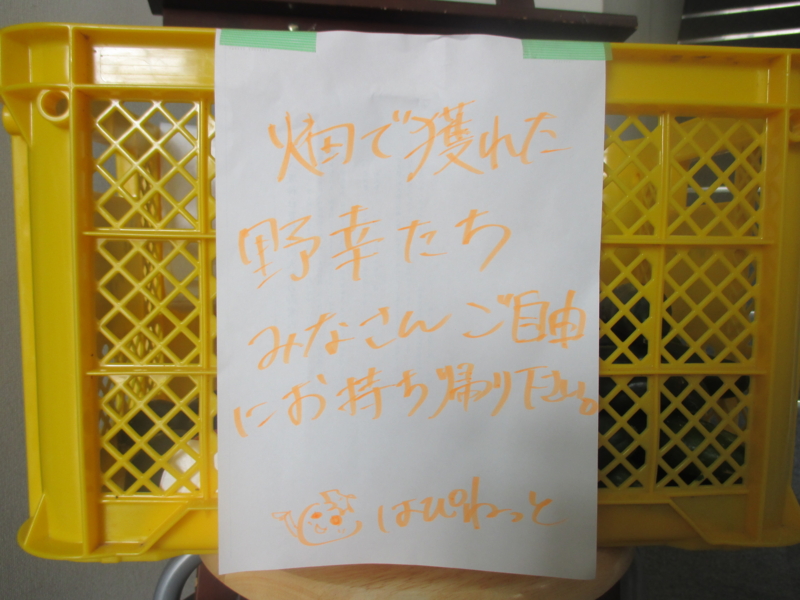 畑で獲れた
野幸たち
みなさんご自由
にお持ち帰り下さい。
はぴねっと